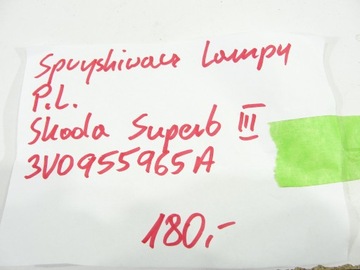 Spryskiwacz Lampy
P.L.
Skoda Superb III
3V0955965A
180,-